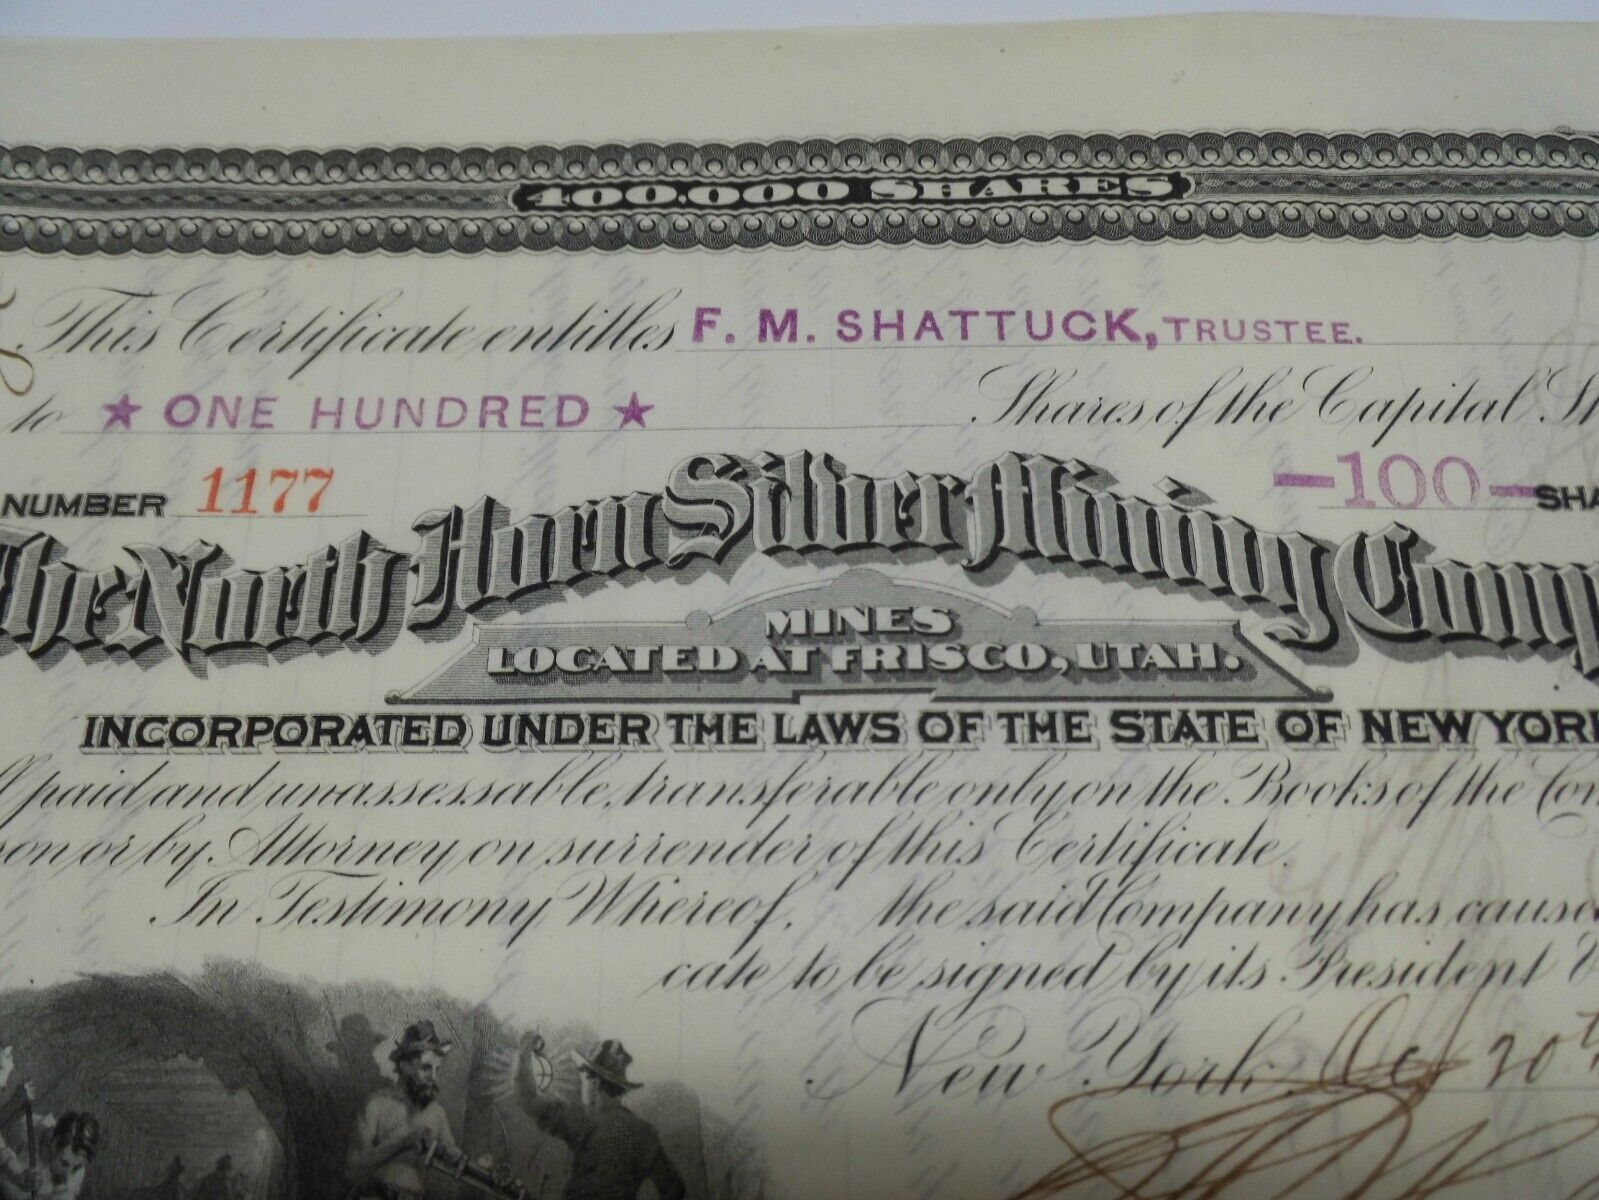 400.000 SHARES
This Certificate entitles F. M. SHATTUCK, TRUSTEE.
to ★ ONE HUNDRED ★ Shares of the Capital St
NUMBER 1177 —100— SHA
The North Horn Silver Mining Comp
MINES
LOCATED AT FRISCO, UTAH.
INCORPORATED UNDER THE LAWS OF THE STATE OF NEW YORK
paid and unassessable, transferable only on the Books of the Com
son or by Attorney on surrender of this Certificate.
In Testimony Whereof, the said Company has cause
cate to be signed by its President
New York, Oct 20th